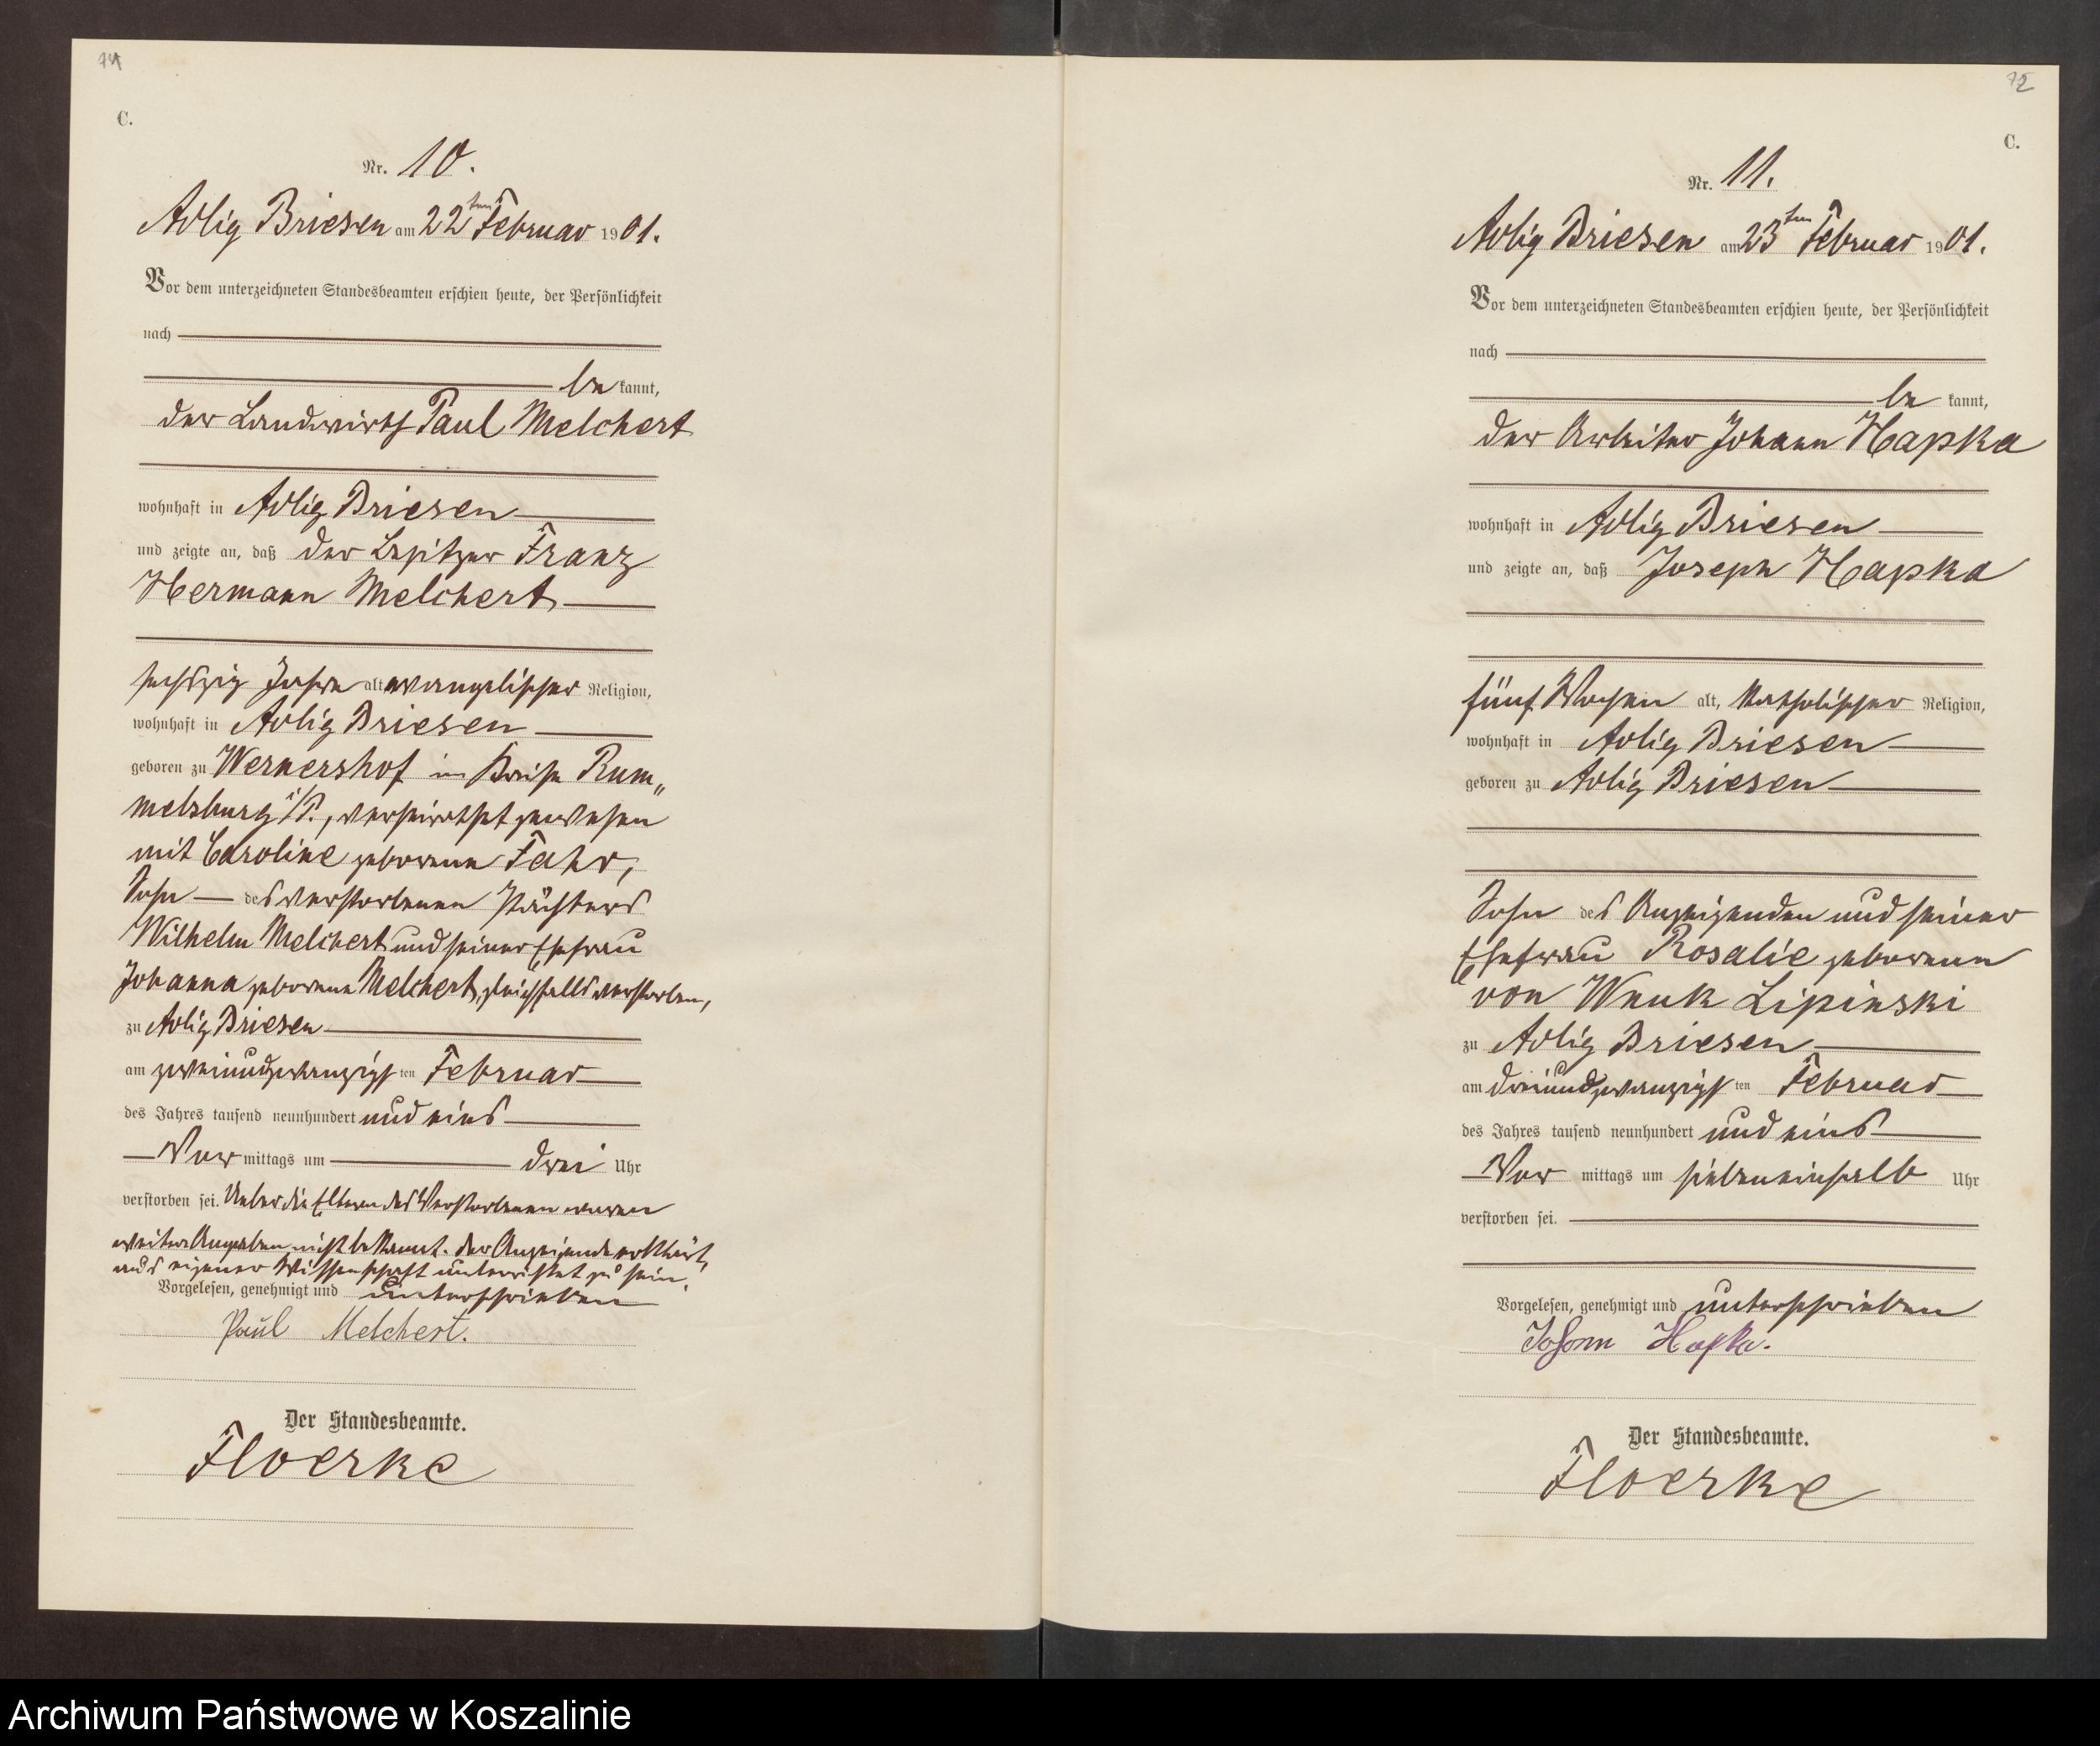 C.
Nr. 10.
Adlig Briesen am 22ten Februar 1901.
Vor dem unterzeichneten Standesbeamten erschien heute, der Persönlichkeit
nach
be kannt,
der Landwirth Paul Melchert
wohnhaft in Adlig Briesen
und zeigte an, daß der Besitzer Franz
Hermann Melchert
sechszig Jahre alt evangelischer Religion,
wohnhaft in Adlig Briesen
geboren zu Wernershof im Kreise Rum„
melsburg i/P., verheirathet gewesen
mit Caroline geborene Fahr,
Sohn des verstorbenen Pächters
Wilhelm Melchert und seiner Ehefrau
Johanna geborene Melchert, gleichfalls verstorben,
zu Adlig Briesen
am zweiundzwanzigsten Februar
des Jahres tausend neunhundert und eins
Vor mittags um drei Uhr
verstorben sei. Ueber die Eltern des Verstorbenen waren
weitere Angaben nicht bekannt. Der Anzeigende erklärt,
aus eigener Wissenschaft unterrichtet zu sein.
Vorgelesen, genehmigt und unterschrieben
Paul Melchert.
Der Standesbeamte.
Floerke
72
C.
Nr. 11.
Adlig Briesen am 23ten Februar 1901.
Vor dem unterzeichneten Standesbeamten erschien heute, der Persönlichkeit
nach
be kannt,
der Arbeiter Johann Hapka
wohnhaft in Adlig Briesen
und zeigte an, daß Joseph Hapka
fünf Wochen alt, katholischer Religion,
wohnhaft in Adlig Briesen
geboren zu Adlig Briesen
Sohn des Anzeigenden und seiner
Ehefrau Rosalie geborene
von Wnuk Lipinski
zu Adlig Briesen
am dreiundzwanzigsten Februar
des Jahres tausend neunhundert und eins
Vor mittags um siebeneinhalb Uhr
verstorben sei.
Vorgelesen, genehmigt und unterschrieben
Johann Hapka.
Der Standesbeamte.
Floerke
Archiwum Państwowe w Koszalinie